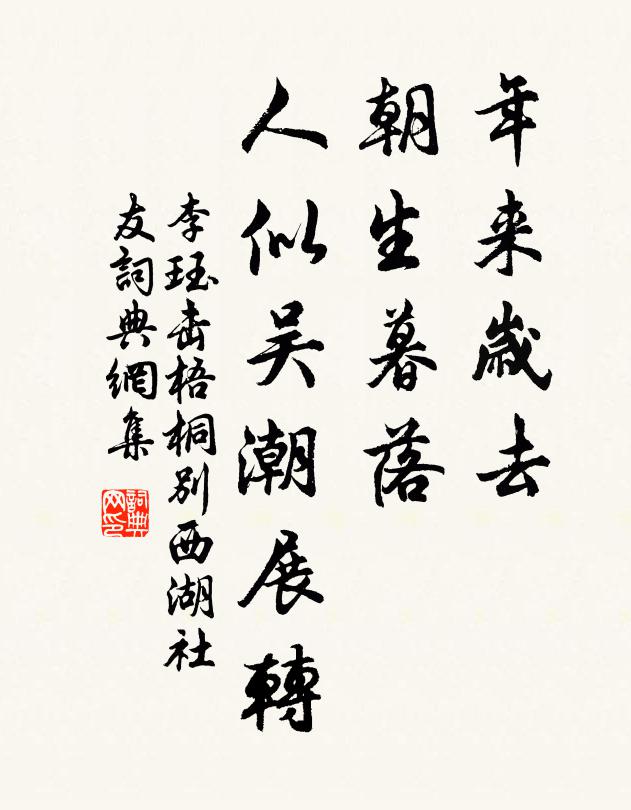 年来歲去
朝生暮落
人似吴潮展轉
李珏击梧桐别西湖社
友詞典網集
詞典網印